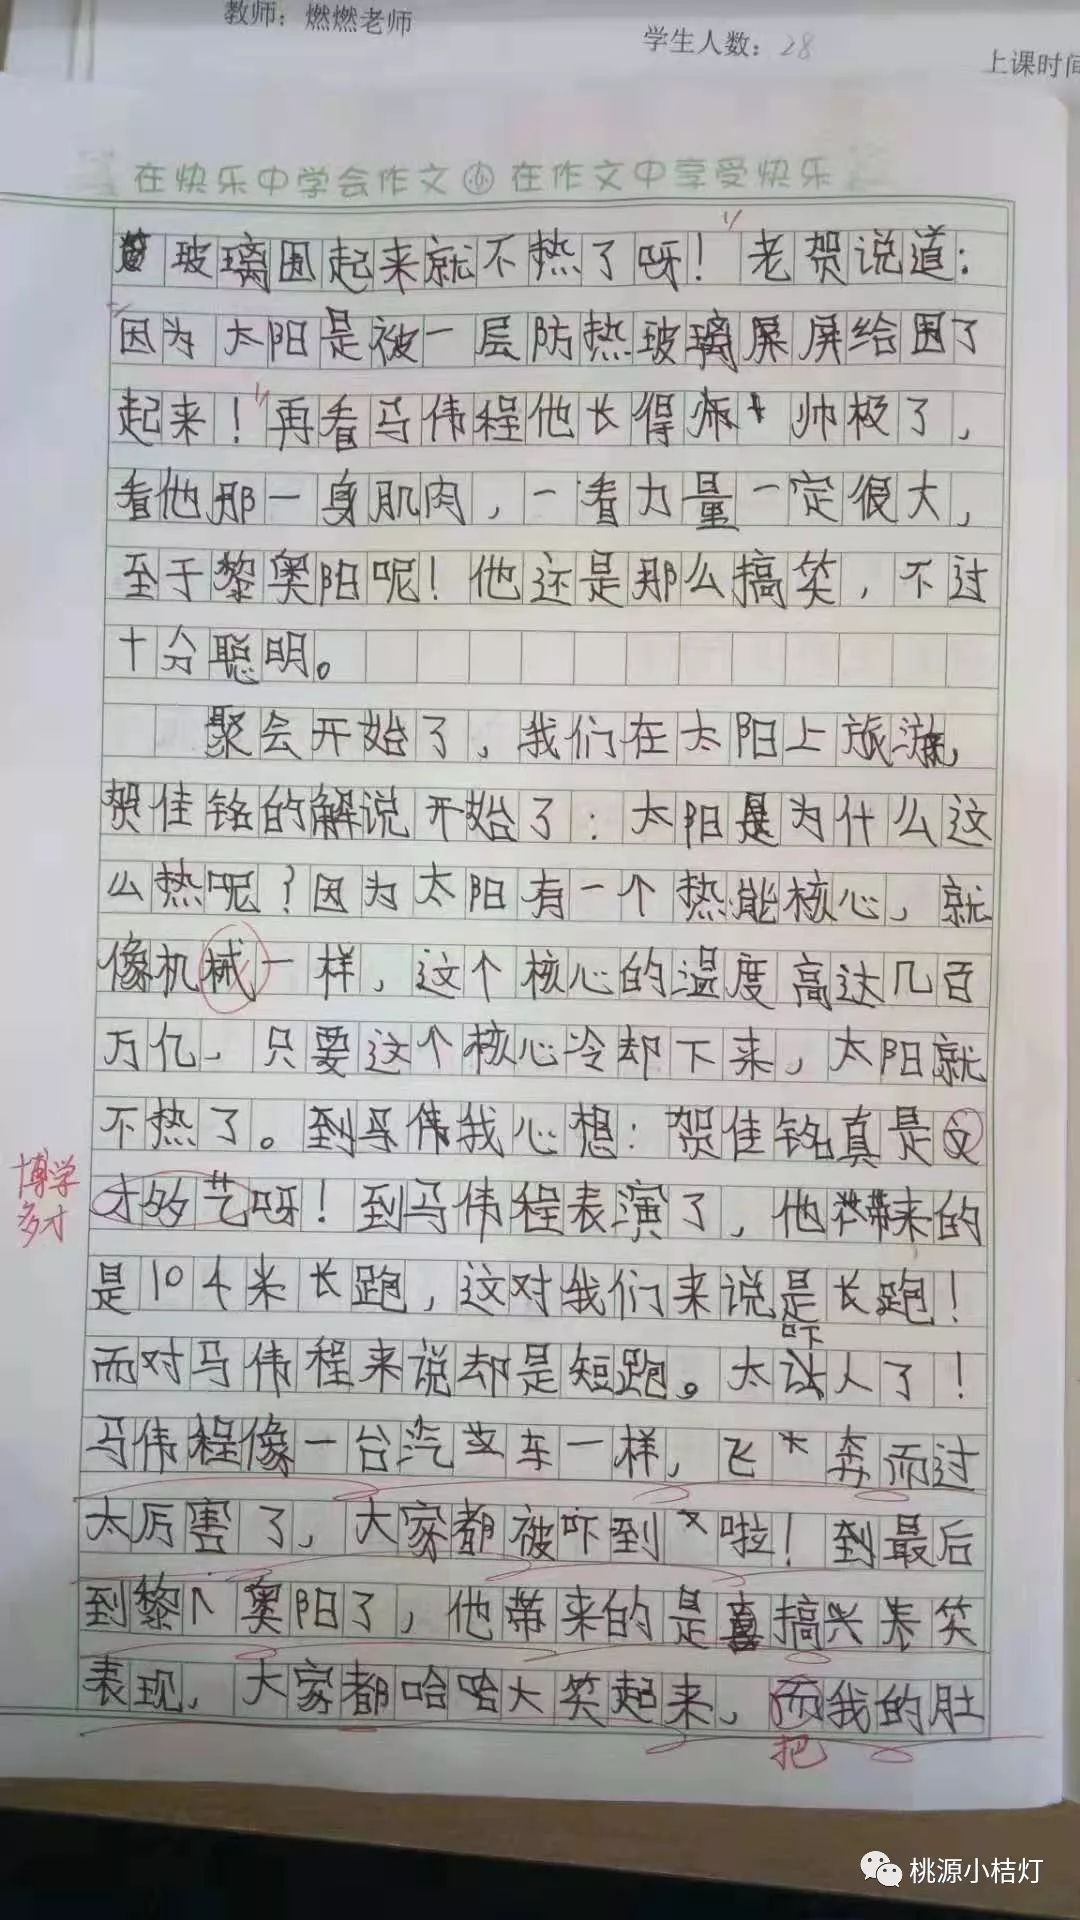 教师：燃燃老师
学生人数：28
上课时间
在快乐中学会作文 在作文中享受快乐
玻璃围起来就不热了呀！”老贺说道：
“因为太阳是被一层防热玻璃屏屏给围了
起来！”再看马伟程他长得帅帅极了，
看他那一身肌肉，一看力量一定很大，
至于黎奥阳呢！他还是那么搞笑，不过
十分聪明。
聚会开始了，我们在太阳上旅游，
贺佳铭的解说开始了：太阳是为什么这
么热呢？因为太阳有一个热能核心，就
像机械一样，这个核心的温度高达几百
万亿，只要这个核心冷却下来，太阳就
不热了。到马伟我心想：贺佳铭真是文
才多艺呀！到马伟程表演了，他带来的
博学
多才
是104米长跑，这对我们来说是长跑！
而对马伟程来说却是短跑。太吓人了！
马伟程像一台汽车一样，飞奔而过
太厉害了，大家都被吓到啦！到最后
到黎奥阳了，他带来的是搞笑
表现，大家都哈哈大笑起来，而我的肚
把
桃源小桔灯